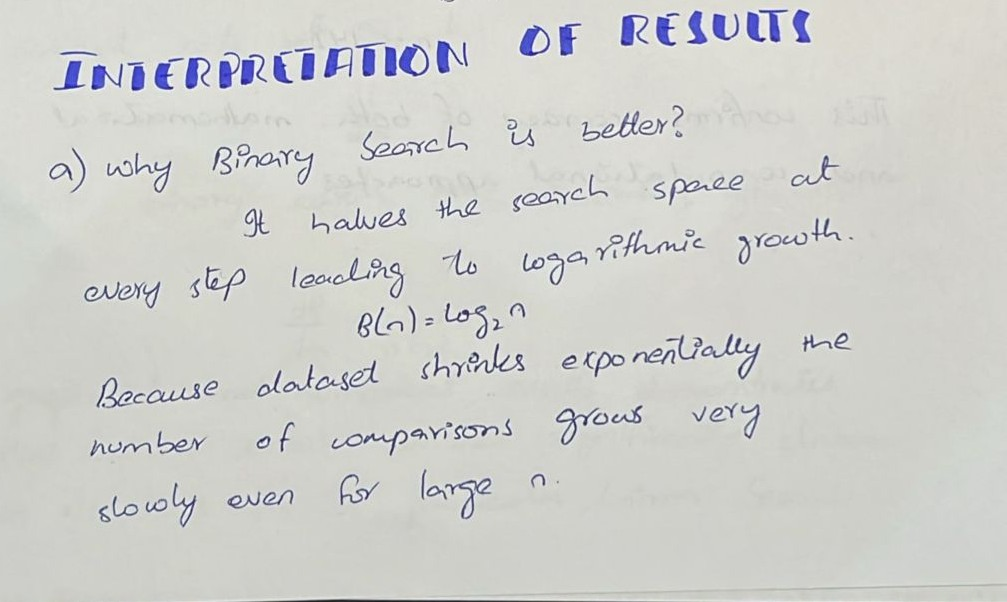 INTERPRETATION OF RESULTS
a) why Binary Search is better?
It halves the search space at
every step leading to logarithmic growth.
B(n) = log₂ n
Because dataset shrinks exponentially the
number of comparisons grows very
slowly even for large n.